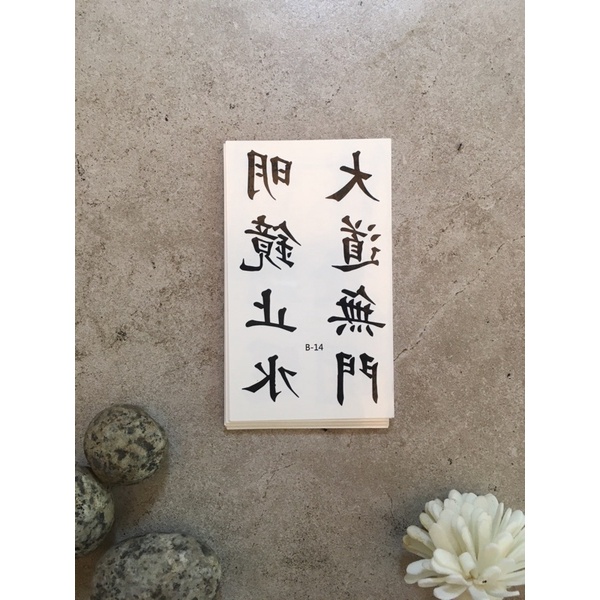 大道無門
明鏡止水
B-14